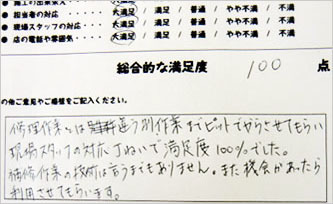 ● 施工の出来栄え 大満足 / 満足 / 普通 / やや不満 / 不満
● 担当者の対応 大満足 / 満足 / 普通 / やや不満 / 不満
● 現場スタッフの対応 大満足 / 満足 / 普通 / やや不満 / 不満
● 店の電話や雰囲気 大満足 / 満足 / 普通 / やや不満 / 不満
総合的な満足度 100 点
の他ご意見やご感想をご記入ください。
修理作業とは違う別作業までピットでやらさせてもらい
現場スタッフの対応丁ねいで満足度100%でした。
補修作業の技術は言うまでもありません。また機会があったら
利用させてもらいます。